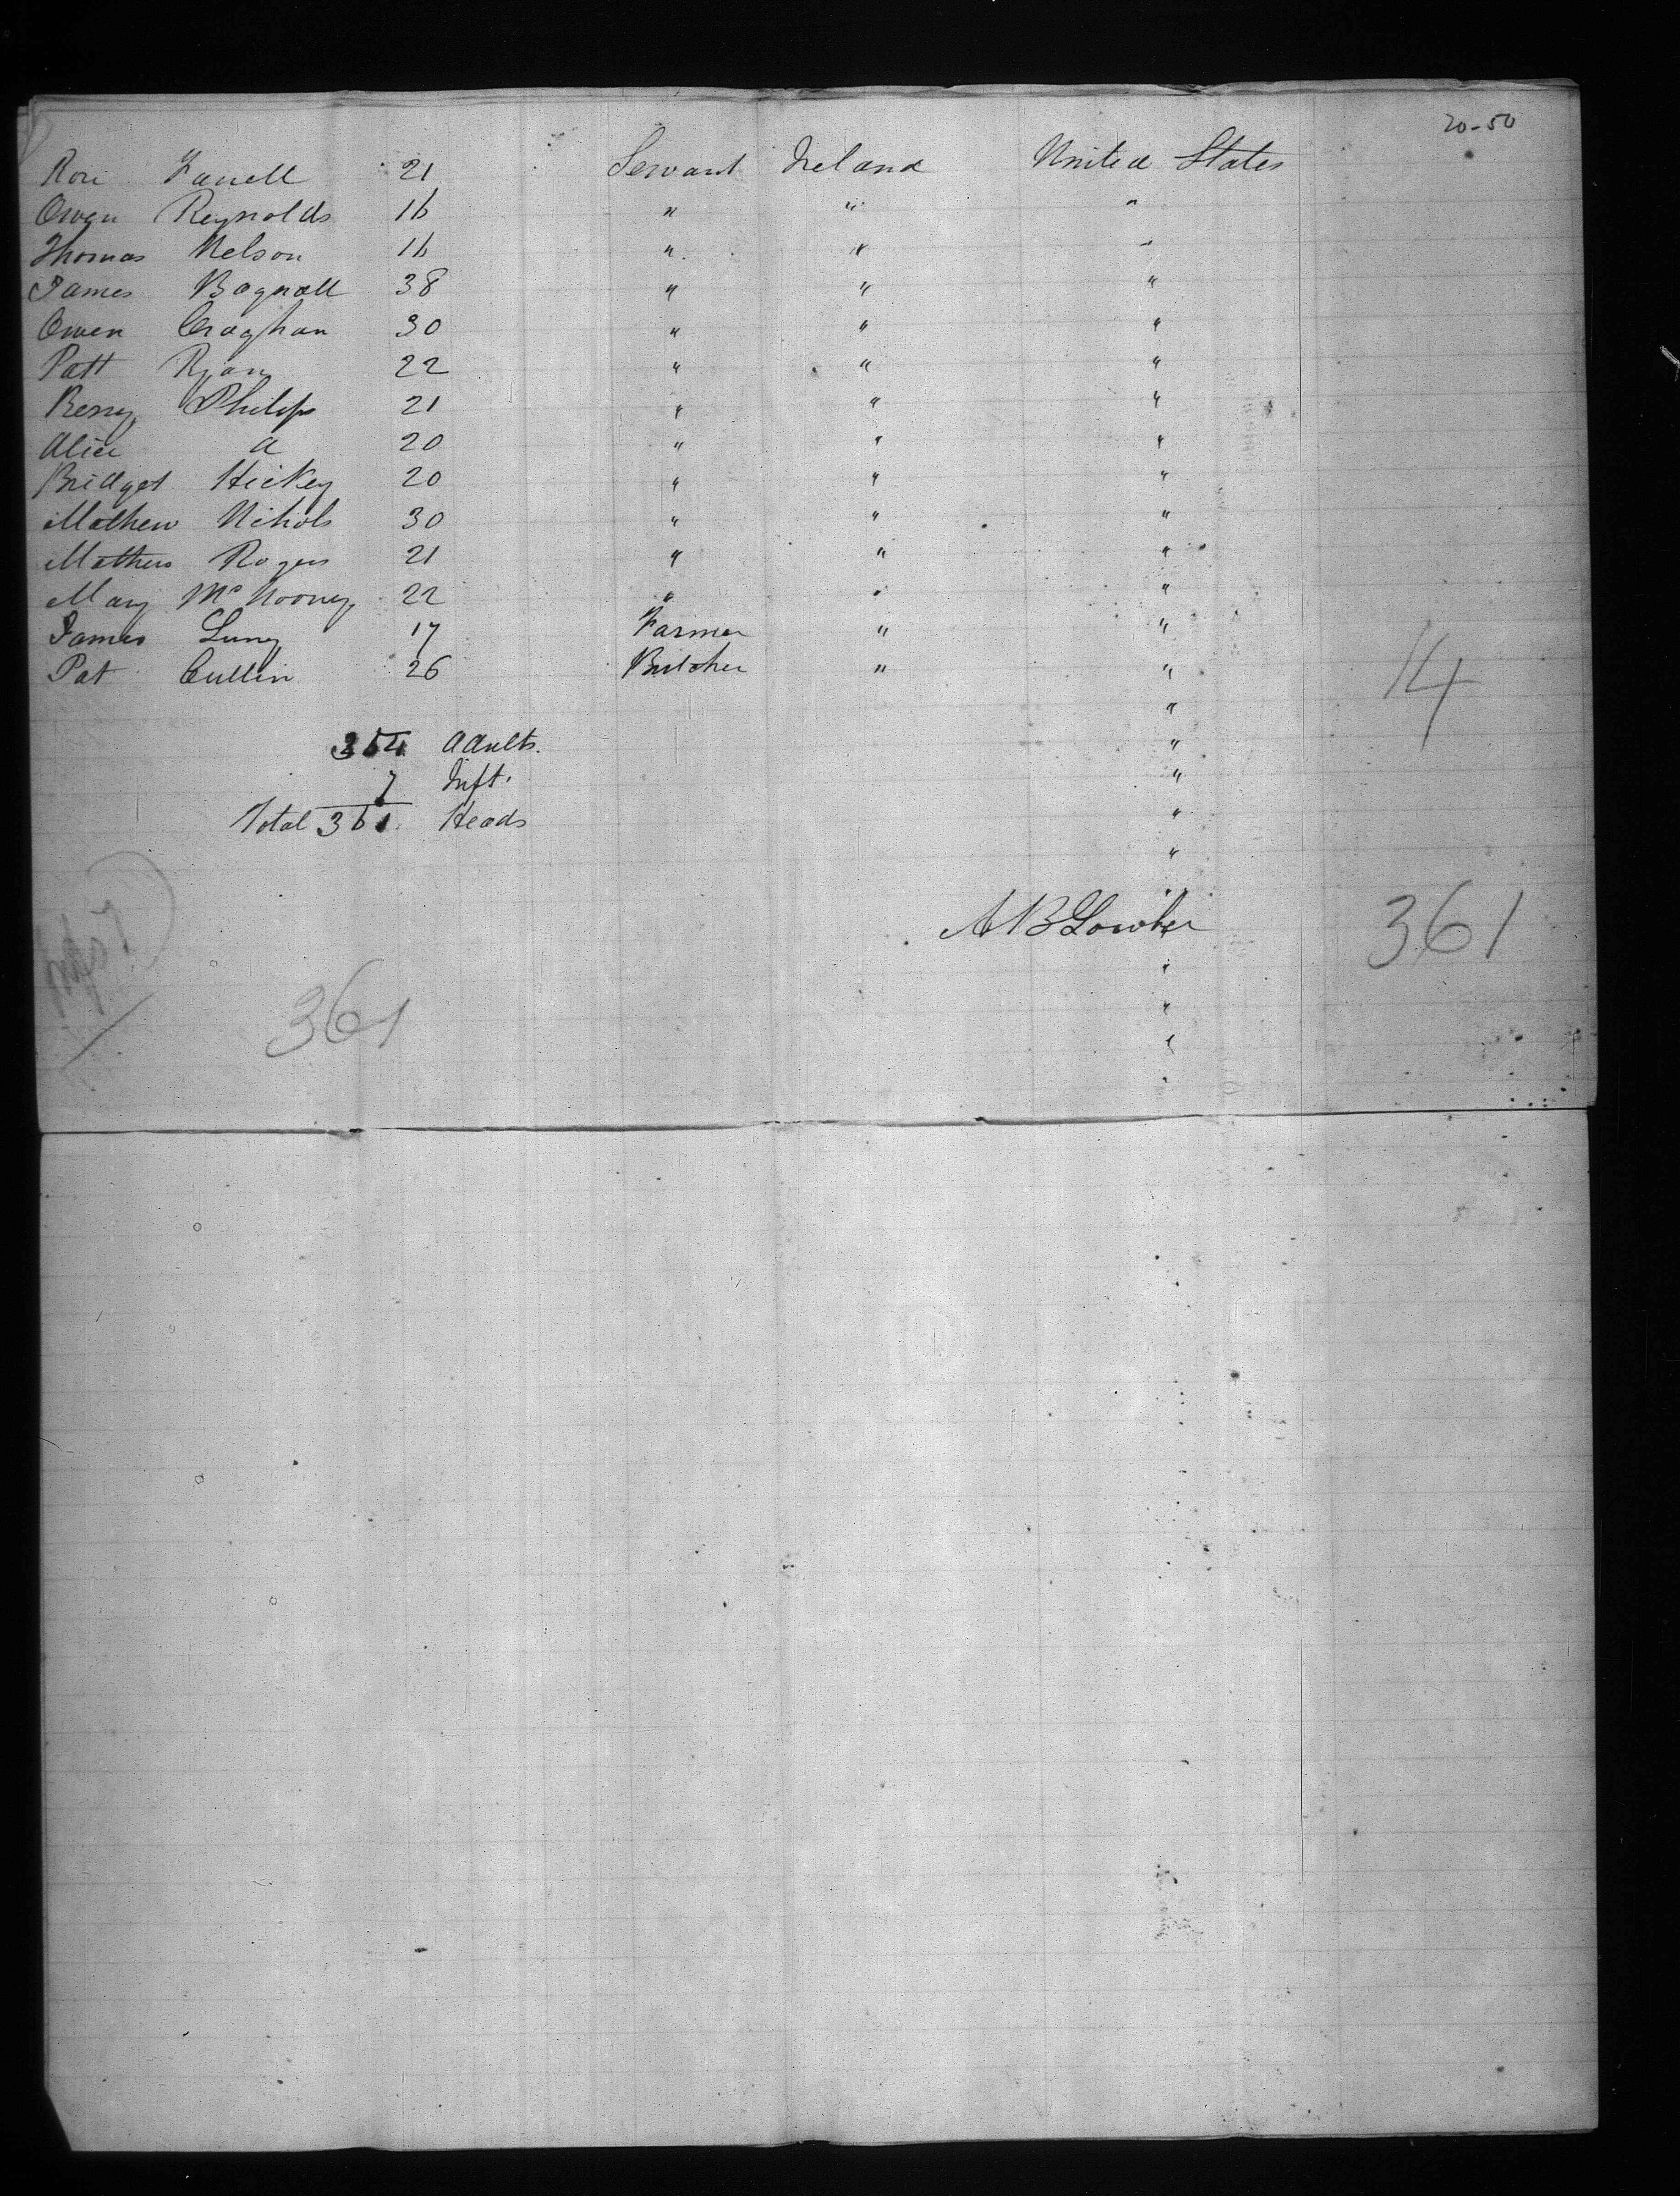 20-50
Rose Farrell 21 Servant Ireland United States
Owen Reynolds 16 " " "
Thomas Nelson 16 " " "
James Bagnall 38 " " "
Owen Craghan 30 " " "
Patt Ryan 22 " " "
Philips 21 " " "
Alice a 20 " " "
Bridget Hickey 20 " " "
Mathew Nichols 30 " " "
Mathew Rogers 21 " " "
Mary McNooney 22 " " "
James Luny 17 Farmer " "
Pat Cullin 26 Butcher " "
14
"
354 Adults. "
7 Inft. "
Total 361 Heads "
"
A B Lowther
361
"
"
361